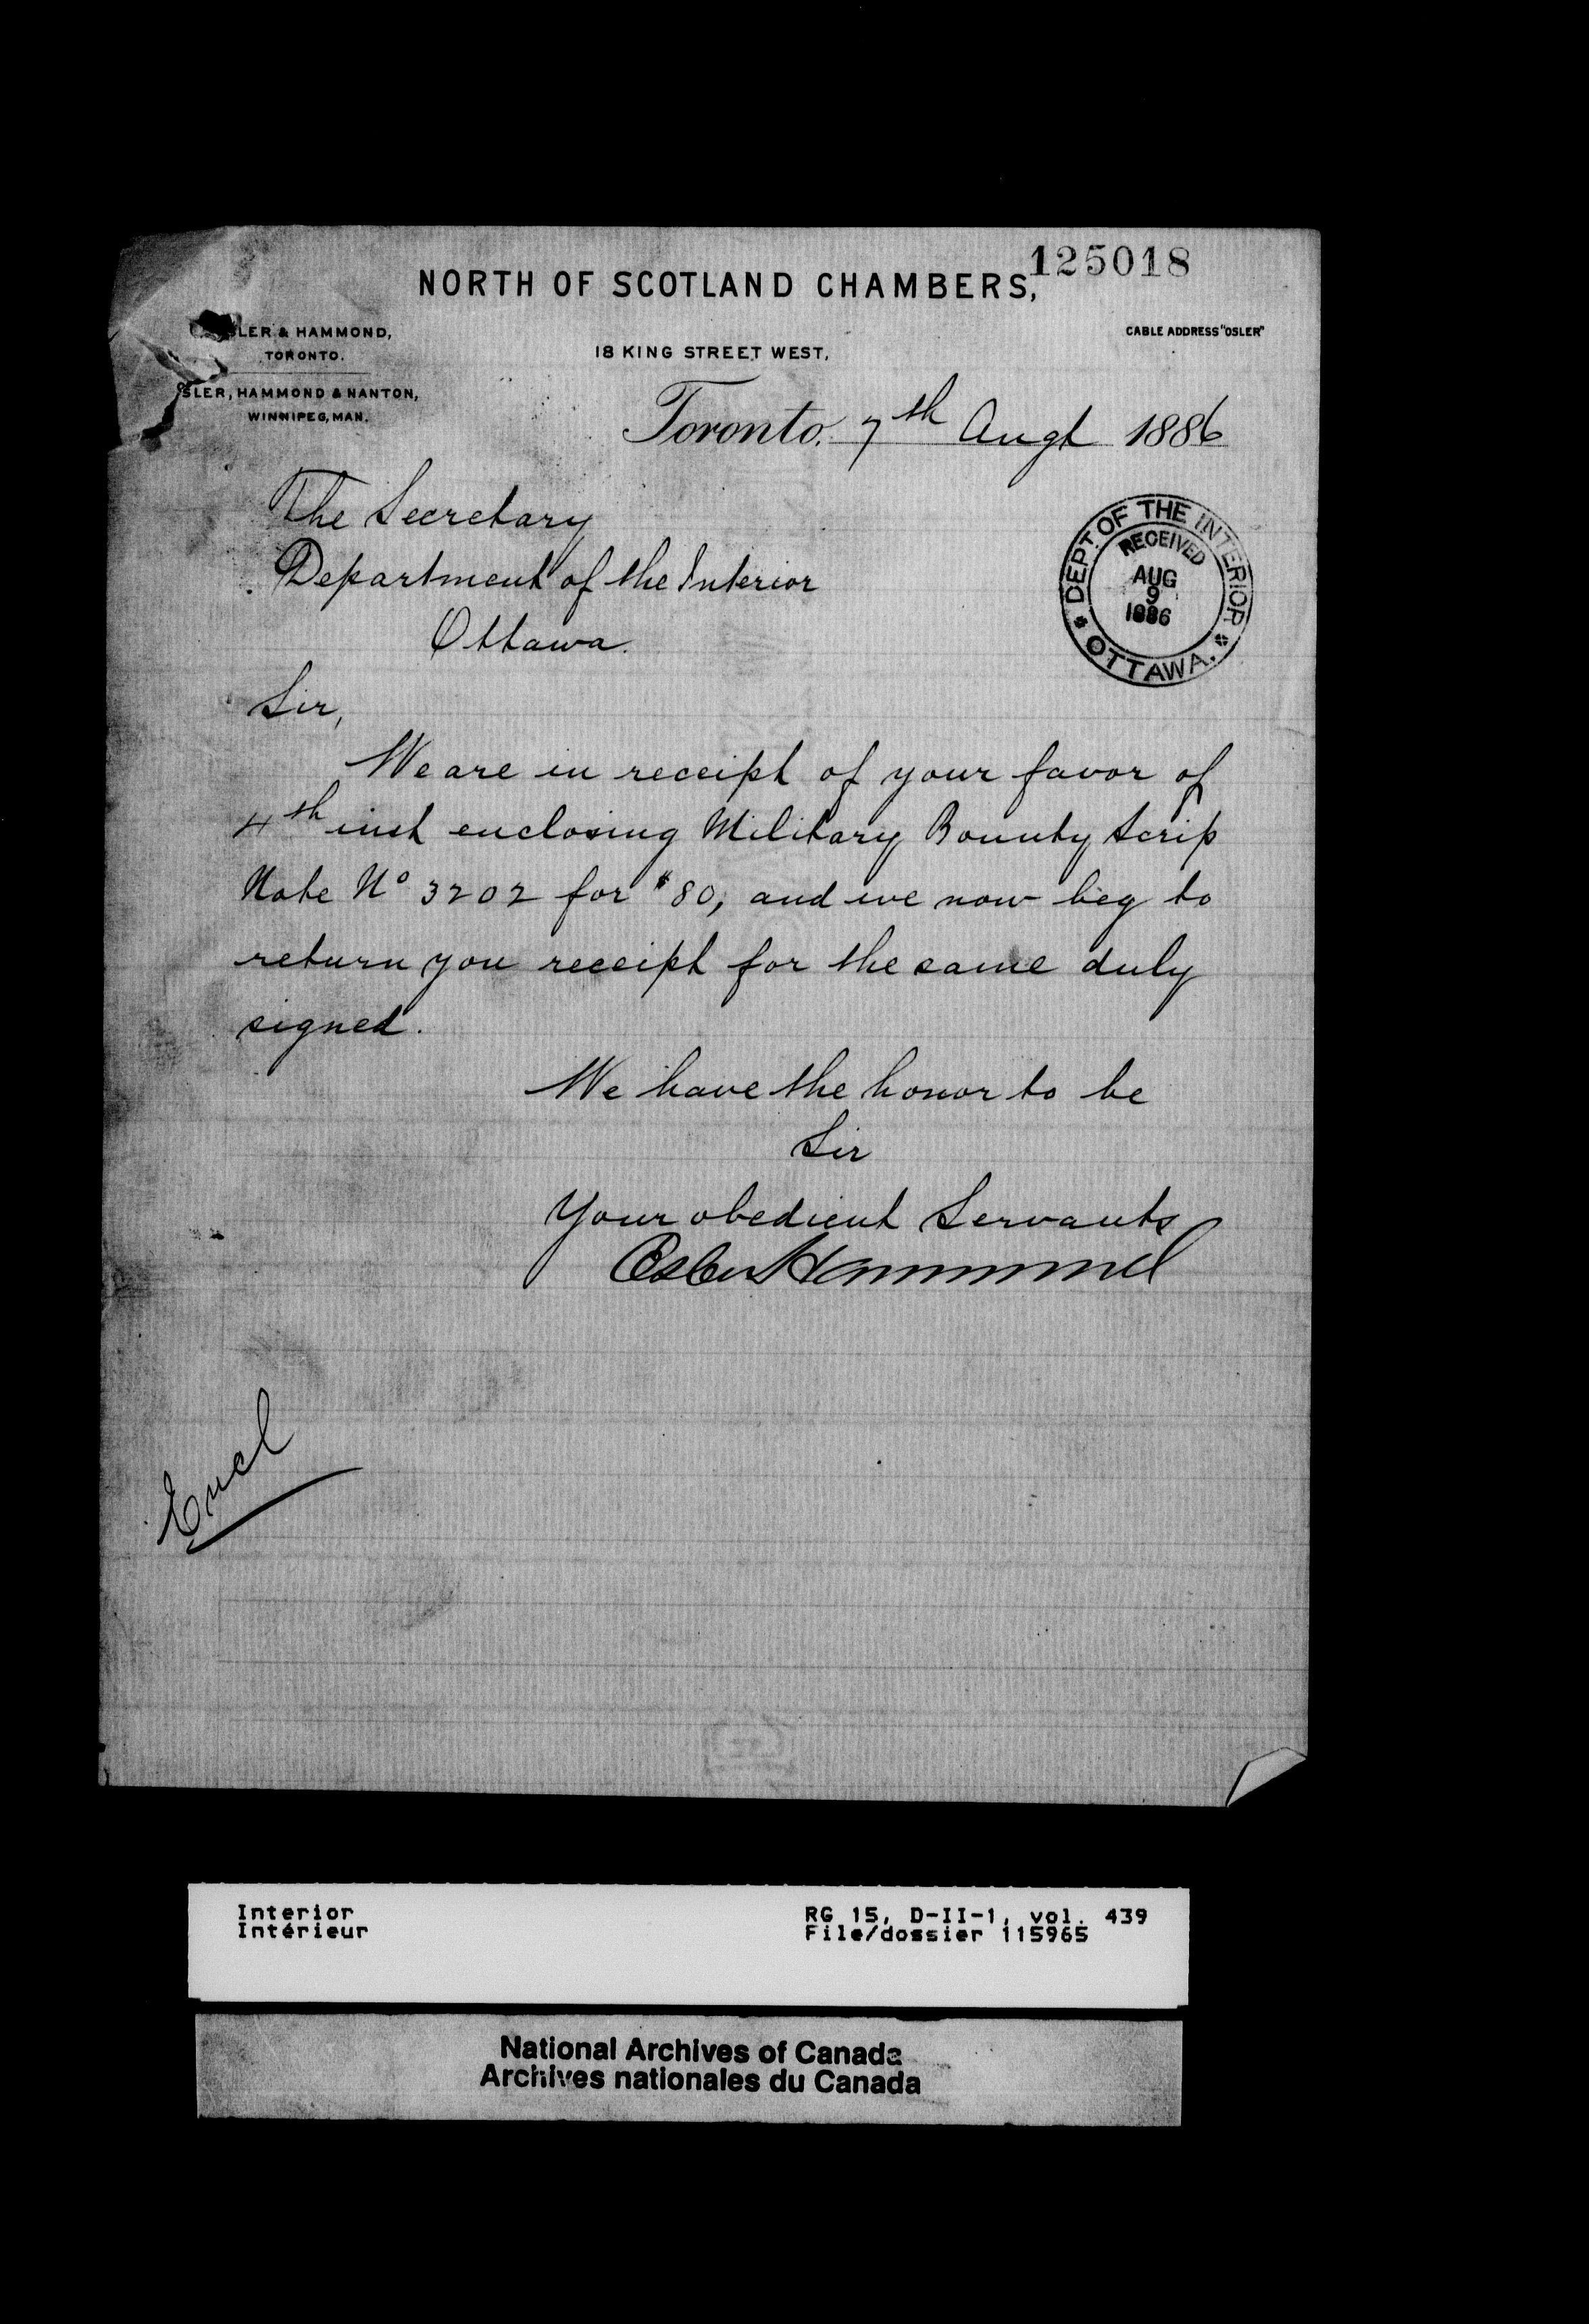 125018
NORTH OF SCOTLAND CHAMBERS,
OSLER & HAMMOND,
TORONTO.
OSLER, HAMMOND & NANTON,
WINNIPEG, MAN.
CABLE ADDRESS "OSLER"
18 KING STREET WEST,
Toronto, 7th Augt 1886
The Secretary
Department of the Interior
Ottawa.
DEPT. OF THE INTERIOR
RECEIVED
AUG
9
1886
OTTAWA.
Sir,
We are in receipt of your favor of
4th inst enclosing Military Bounty Scrip
Note No 3202 for $80, and we now beg to
return you receipt for the same duly
signed.
We have the honor to be
Sir
Your obedient Servants
Osler Hammond
Encl
Interior
Intérieur
RG 15, D-II-1, vol. 439
File/dossier 115965
National Archives of Canada
Archives nationales du Canada